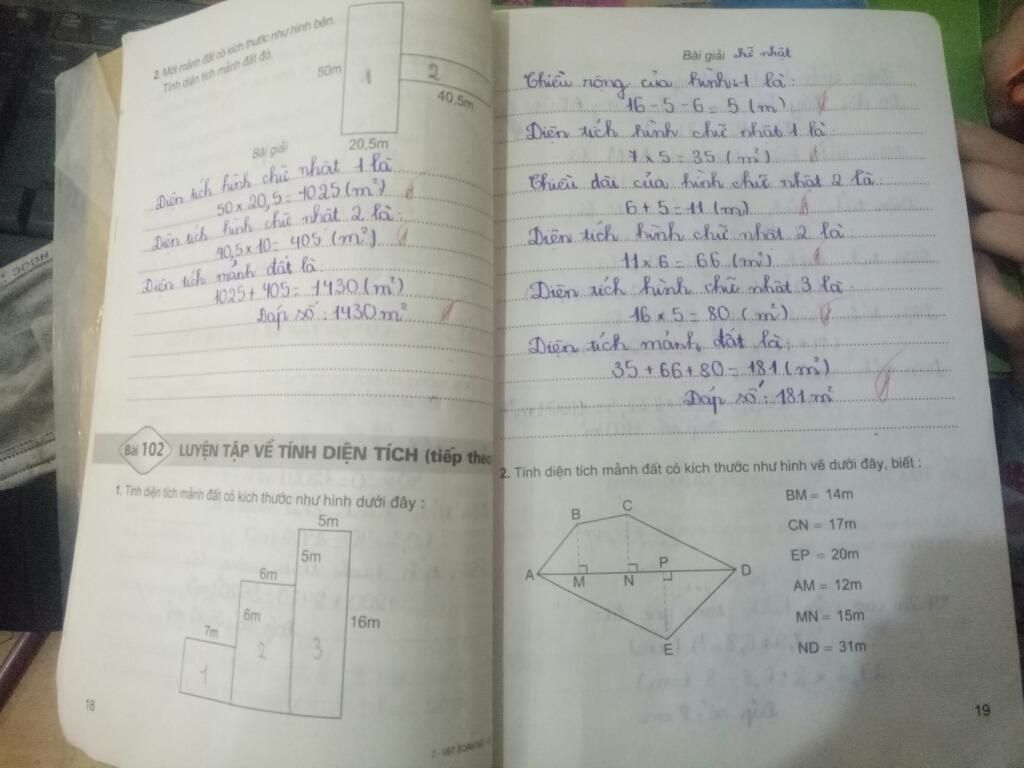 2. Một mảnh đất có kích thước như hình bên.
Tính diện tích mảnh đất đó.
50m
1
2
40,5m
20,5m
Bài giải
Diện tích hình chữ nhật 1 là
50 x 20,5 = 1025 (m²)
Diện tích hình chữ nhật 2 là:
40,5 x 10 = 405 (m²)
Diện tích mảnh đất là
1025 + 405 = 1430 (m²)
Đáp số: 1430 m²
Bài 102 LUYỆN TẬP VỀ TÍNH DIỆN TÍCH (tiếp theo
1. Tính diện tích mảnh đất có kích thước như hình dưới đây :
5m
5m
6m
6m
16m
7m
1
2
3
18
Bài giải chữ nhật
Chiều rộng của hình 1 là:
16 - 5 - 6 = 5 (m)
Diện tích hình chữ nhật 1 là
7 x 5 = 35 (m²)
Chiều dài của hình chữ nhật 2 là:
6 + 5 = 11 (m)
Diện tích hình chữ nhật 2 là
11 x 6 = 66 (m²)
Diện tích hình chữ nhật 3 là
16 x 5 = 80 (m²)
Diện tích mảnh đất là:
35 + 66 + 80 = 181 (m²)
Đáp số: 181 m²
2. Tính diện tích mảnh đất có kích thước như hình vẽ dưới đây, biết :
B
C
A
M
N
P
D
E
BM = 14m
CN = 17m
EP = 20m
AM = 12m
MN = 15m
ND = 31m
19